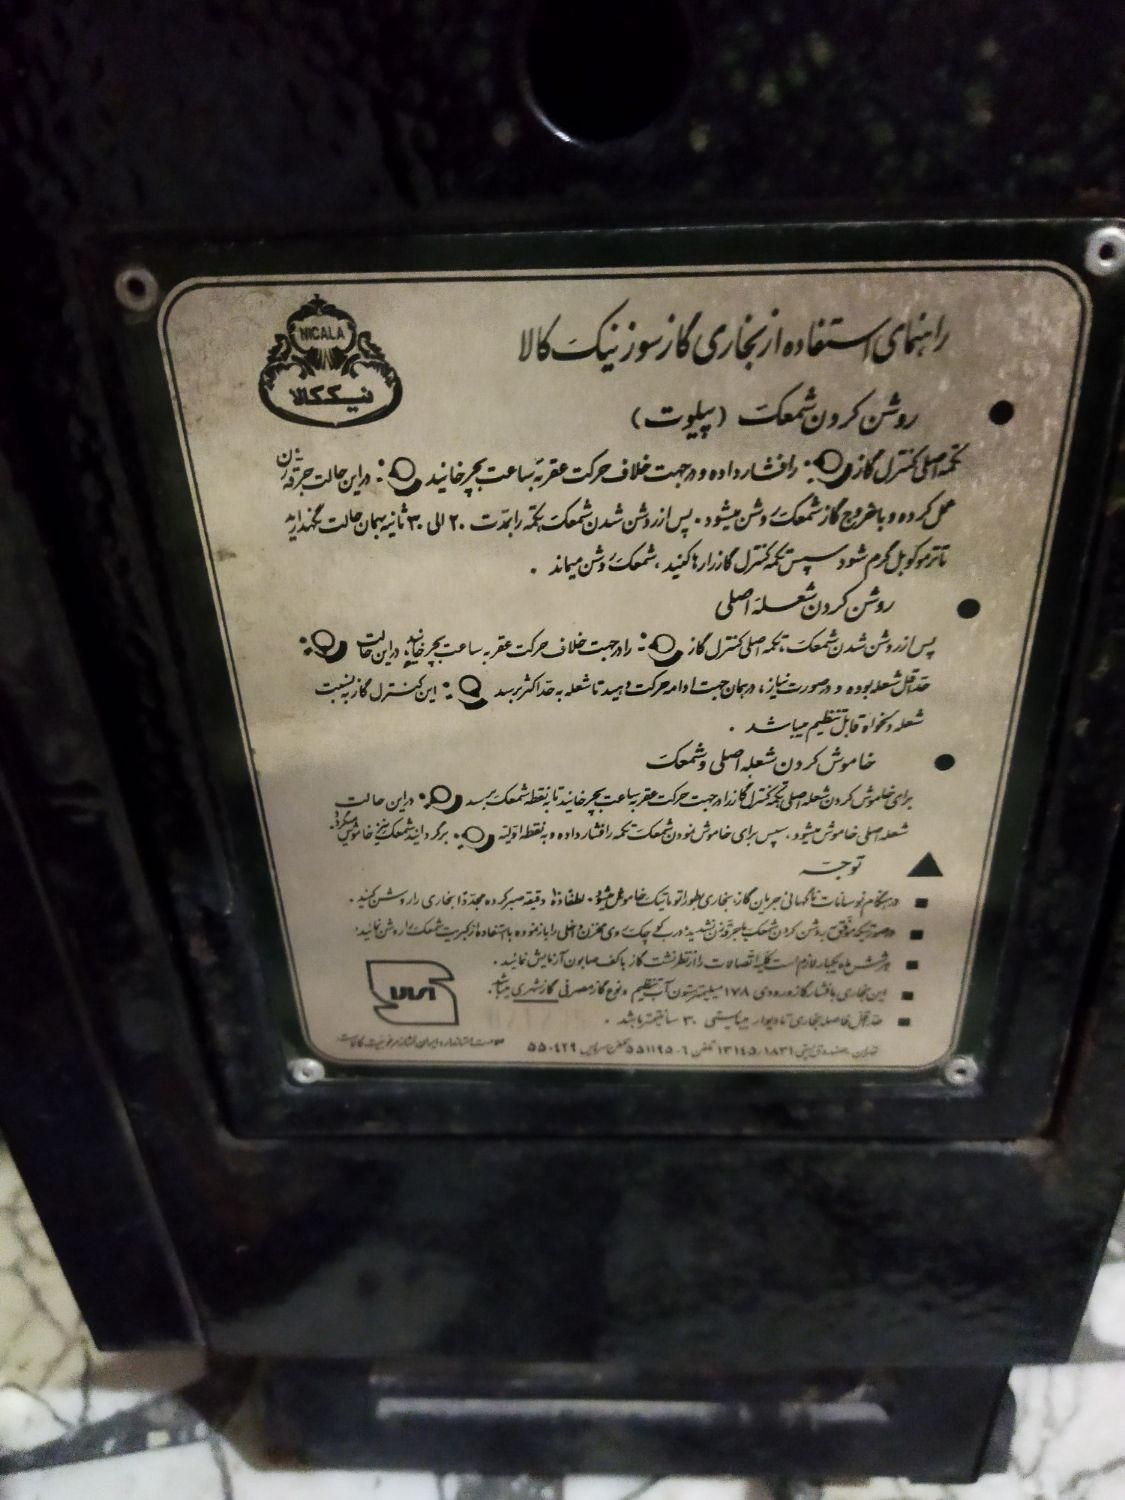 NICALA
نیک کالا
راهنمای استفاده از بخاری گازسوز نیک کالا
روشن کردن شمعک (پیلوت)
تکمه اصلی کنترل گاز را فشار داده و در جهت خلاف حرکت عقربه ساعت بچرخانید در این حالت جرقه زن
عمل کرده و با خروج گاز شمعک روشن میشود. پس از روشن شدن شمعک تکمه را بمدت ۲۰ الی ۳۰ ثانیه بهمان حالت نگهدارید
تا ترموکوبل گرم شود سپس تکمه کنترل گاز را رها کنید، شمعک روشن میماند.
روشن کردن شعله اصلی
پس از روشن شدن شمعک، تکمه اصلی کنترل گاز را در جهت خلاف حرکت عقربه ساعت بچرخانید، در این حالت
حداقل شعله بوده و در صورت نیاز، در همان جهت ادامه حرکت دهید تا شعله به حداکثر برسد این کنترل گاز به نسبت
شعله دلخواه قابل تنظیم میباشد.
خاموش کردن شعله اصلی و شمعک
برای خاموش کردن شعله اصلی تکمه کنترل گاز را در جهت حرکت عقربه ساعت بچرخانید تا به نقطه شمعک برسد در این حالت
شعله اصلی خاموش میشود، سپس برای خاموش نمودن شمعک تکمه را فشار داده و به نقطه اولیه برگردانید شمعک نیز خاموش میگردد.
توجه
در هنگام نوسانات ناگهانی جریان گاز، بخاری بطور اتوماتیک خاموش میشود. لطفاً ۱۰ دقیقه صبر کرده مجدداً بخاری را روشن کنید.
در صورتیکه موفق به روشن کردن شمعک با جرقه زن نشدید درب کوچک روی مخزن داخلی را باز نموده با استفاده از کبریت شمعک را روشن نمائید.
هر شش ماه یکبار لازم است کلیه اتصالات را از نظر نشت گاز با کف صابون آزمایش نمائید.
این بخاری با فشار گاز ورودی ۱۷۸ میلیمتر ستون آب تنظیم و نوع گاز مصرفی گاز شهری میباشد.
حداقل فاصله بخاری تا دیوار میبایستی ۳۰ سانتیمتر باشد.
تهران، صندوق پستی ۱۳۱۴۵/۱۸۳۱ تلفن ۶-۵۵۱۱۹۵ تلفن سرویس ۵۵۰۴۲۹